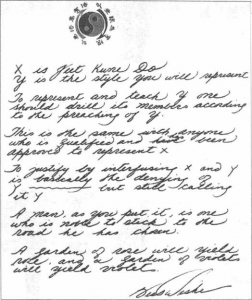 X is Jeet Kune Do
Y is the style you will represent
To represent and teach Y one
should drill its members according
to the preaching of Y.
This is the same with anyone
who is qualified and has been
approved to represent X
To justify by interfusing X and Y
is basically the denying of
Y but still calling
it Y
A man, as you put it, is one
who is noted to stick to the
road he has chosen.
A garden of rose will yield
rose, and a garden of violets
will yield violet.